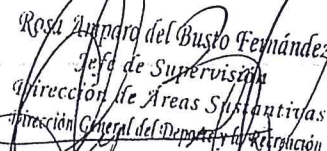 Rosa Amparo del Busto Fernández
Jefe de Supervisión
Dirección de Áreas Sustantivas
Dirección General del Deporte y la Recreación